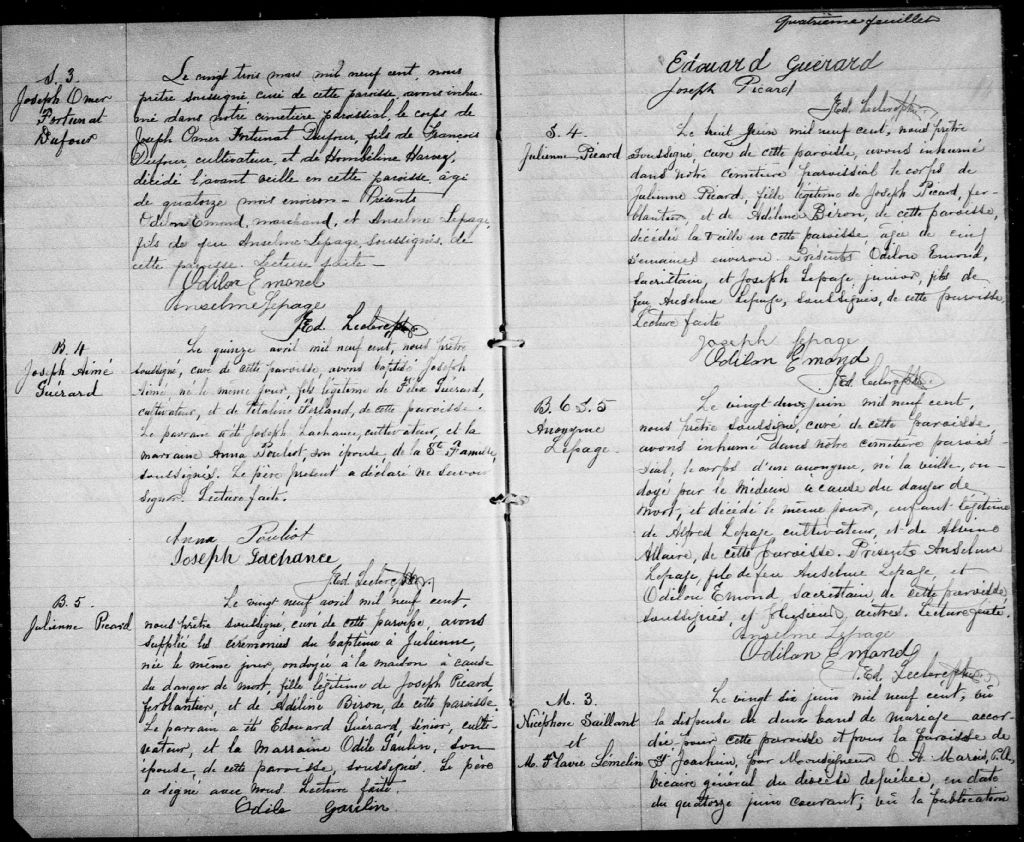 S. 3
Joseph Omer
Fortunat
Dufour
Le vingt trois mars mil neuf cent, nous
prêtre soussigné curé de cette paroisse, avons inhu-
mé dans notre cimetière paroissial, le corps de
Joseph Omer Fortunat Dufour, fils de François
Dufour, cultivateur, et de Hombéline Harvey,
décédé l'avant veille en cette paroisse, âgé
de quatorze mois environ - Présents
Odilon Emond, marchand, et Anselme Lepage,
fils de feu Anselme Lepage, soussignés, de
cette paroisse. Lecture faite -
Odilon Emond
Anselme Lepage
Ed. Leclerc Ptre
B. 4
Joseph Aimé
Guérard
Le quinze avril mil neuf cent, nous prêtre
soussigné, curé de cette paroisse, avons baptisé Joseph
Aimé, né le même jour, fils légitime de Félix Guérard,
cultivateur, et de Ferland, de cette paroisse.
Le parrain a été Joseph Lachance, cultivateur, et la
marraine Anna Pouliot, son épouse, de la Ste Famille,
soussignés. Le père présent a déclaré ne savoir
signer. Lecture faite.
Anna Pouliot
Joseph Lachance
Ed. Leclerc Ptre
B. 5.
Julienne Picard
Le vingt neuf avril mil neuf cent,
nous prêtre soussigné, curé de cette paroisse, avons
suppléé les cérémonies du baptême à Julienne,
née le même jour, ondoyée à la maison à cause
du danger de mort, fille légitime de Joseph Picard,
ferblantier, et de Adéline Biron, de cette paroisse.
Le parrain a été Edouard Guérard, sénior, culti-
vateur, et la marraine Odile Gaulin, son
épouse, de cette paroisse, soussignés. Le père
a signé avec nous. Lecture faite.
Odile Gaulin
Quatrième feuillet
Edouard Guérard
Joseph Picard
Ed. Leclerc Ptre
S. 4.
Julienne Picard
Le huit juin mil neuf cent, nous prêtre
soussigné, curé de cette paroisse, avons inhumé
dans notre cimetière paroissial le corps de
Julienne Picard, fille légitime de Joseph Picard, fer-
blantier, et de Adéline Biron, de cette paroisse,
décédée la veille en cette paroisse âgée de cinq
semaines environ. Présents Odilon Emond,
sacristain, et Joseph Lepage, junior, fils de
feu Anselme Lepage, soussignés, de cette paroisse,
Lecture faite
Joseph Lepage
Odilon Emond
Ed. Leclerc Ptre
B. 6 S. 5
Anonyme
Lepage
Le vingt deux juin mil neuf cent,
nous prêtre soussigné, curé de cette paroisse,
avons inhumé dans notre cimetière parois-
sial, le corps d'un anonyme, né la veille, on-
doyé par le médecin a cause du danger de
mort, et décédé le même jour, enfant légitime
de Alfred Lepage cultivateur, et de Alvine
Allaire, de cette paroisse. Présents Anselme
Lepage, fils de feu Anselme Lepage, et
Odilon Emond sacristain, de cette paroisse
soussignés, et plusieurs autres. Lecture faite.
Anselme Lepage
Odilon Emond
Ed. Leclerc Ptre
M. 3
Nicéphore Saillant
et
M. Flavie Lemelin
Le vingt six juin mil neuf cent, vu
la dispense de deux bans de mariage accor-
dée pour cette paroisse et pour la paroisse de
St Joachim, par Monseigneur C. A. Marois, P.A.,
vicaire général du diocèse de Québec, en date
du quatorze juin courant; vu la publication